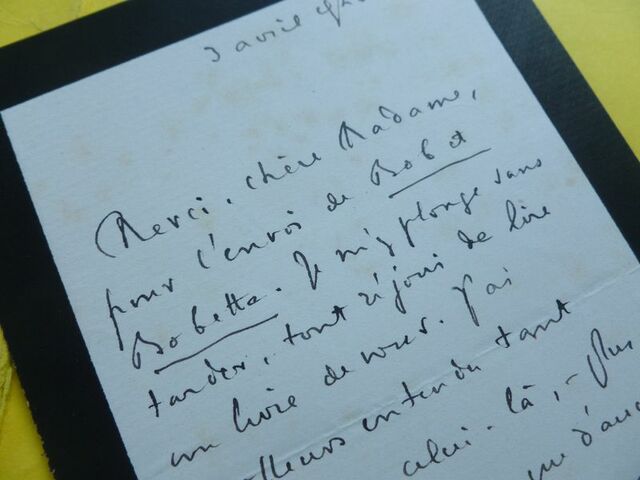 3 avril
Merci, chère Madame,
pour l'envoi de Bobet
Bobette. Je m'y plonge sans
tarder, tout réjoui de lire
un livre de vous. J'ai
entendu tant
celui-là, - plus
que